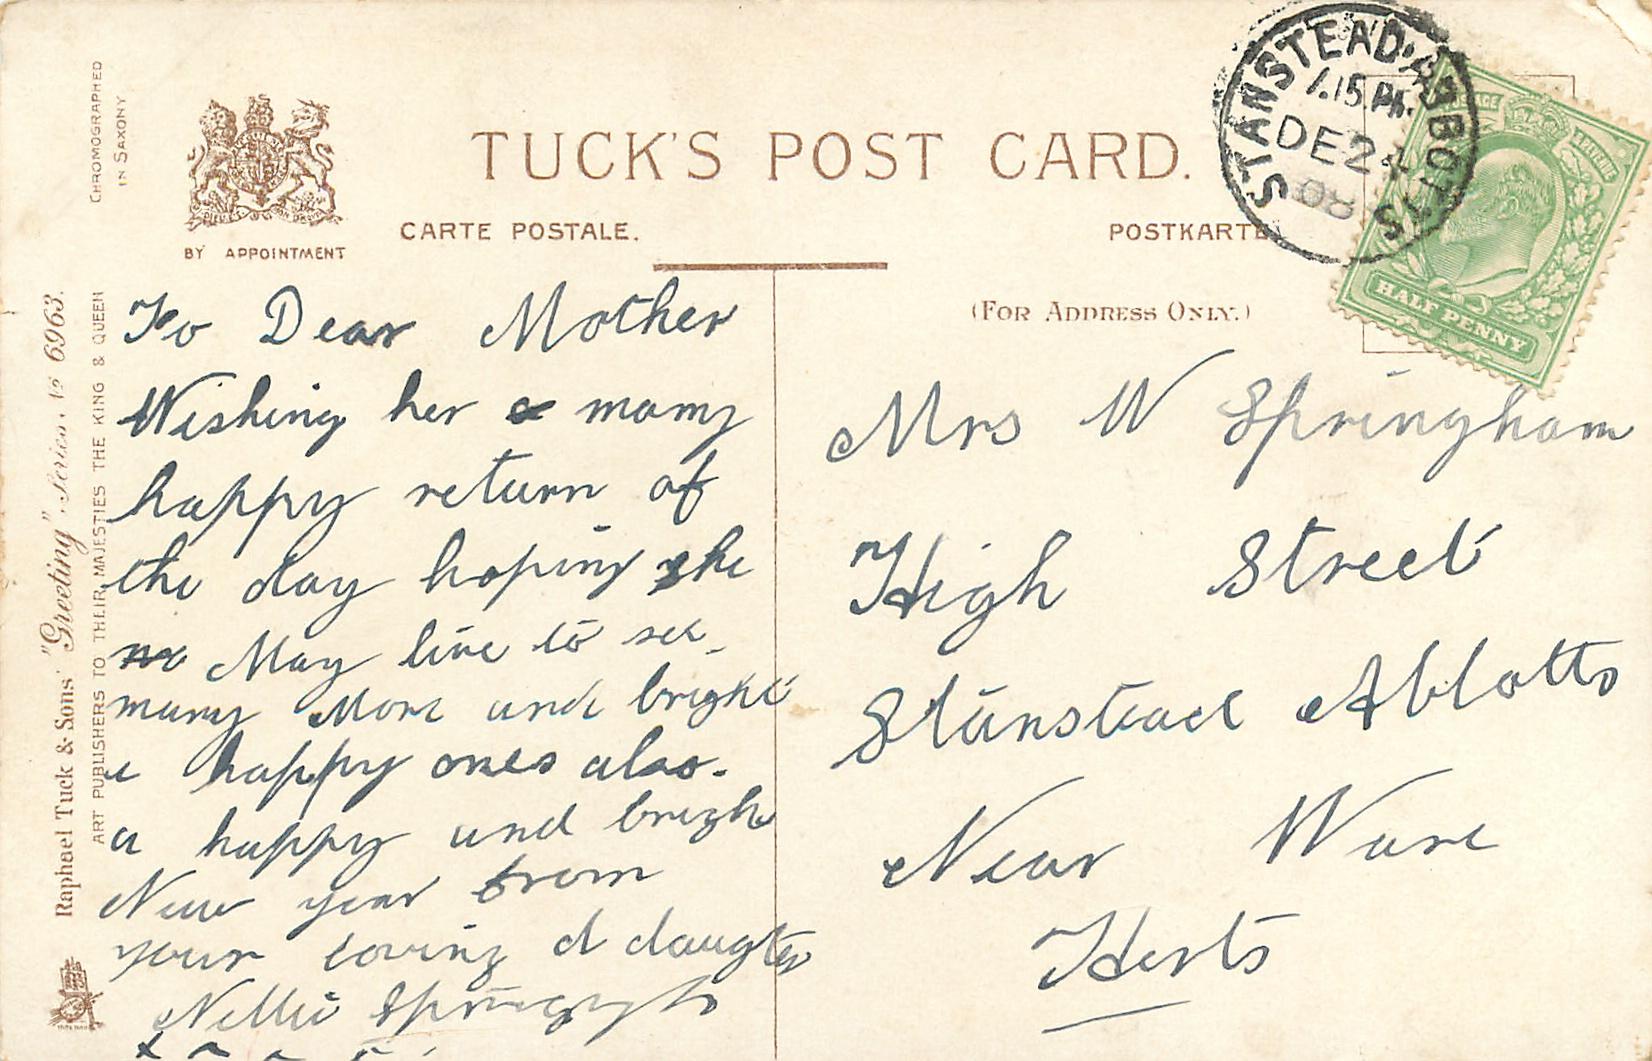 CHROMOGRAPHED
IN SAXONY
BY APPOINTMENT
TUCK'S POST CARD.
CARTE POSTALE.
POSTKARTE
(FOR ADDRESS ONLY.)
STANSTEAD·ABBOTTS
1.15 PM.
DE 24
08
POSTAGE
HALF PENNY
Raphael Tuck & Sons' "Greeting" Series № 6963.
ART PUBLISHERS TO THEIR MAJESTIES THE KING & QUEEN
To Dear Mother
Wishing her a many
happy return of
the day hoping she
May live to see
many More and bright
a happy ones also.
a happy and bright
New year from
your loving d daugter
Nellie
Mrs W Springham
High Street
Stanstead Abbotts
Near Ware
Herts